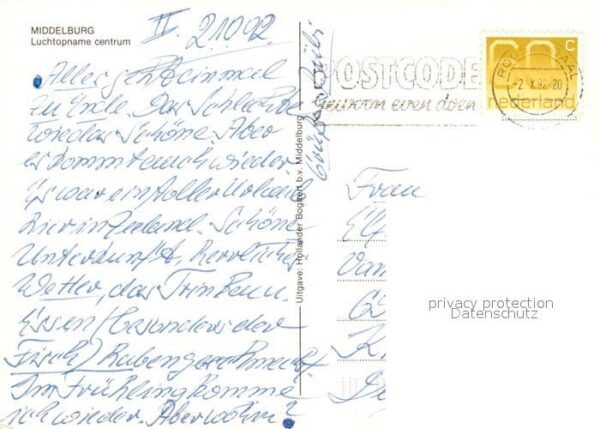 MIDDELBURG
Luchtopname centrum
II 2.10.92
Alles geht einmal
zu Ende. Das Schlechte
wie das Schöne. Aber
es kommt auch wieder.
Es war ein toller Urlaub
hier in Zeeland. Schöne
Unterkunft, herrliches
Wetter, das Trinken u.
Essen (besonders der
Fisch) haben geschmeckt
Im Frühling komme
ich wieder. Aber wohin?
Uitgave: Hollander Bogaert b.v. Middelburg
POSTCODE
even doen
60 c
nederland
-2.X.92.20
Frau
privacy protection
Datenschutz